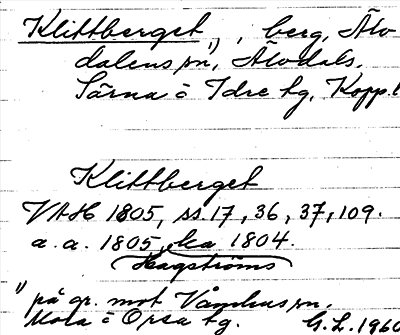 Klittberget 1), berg, Älv
dalens sn, Älvdals,
Särna o Idre tg, Kopp. l
Klittberget
VAH 1805, ss. 17, 36, 37, 109.
a. a. 1805, ka 1804.
Hagströms
1) på gr. mot Våmhus sn.
Mora o Orsa tg. G.L. 1960